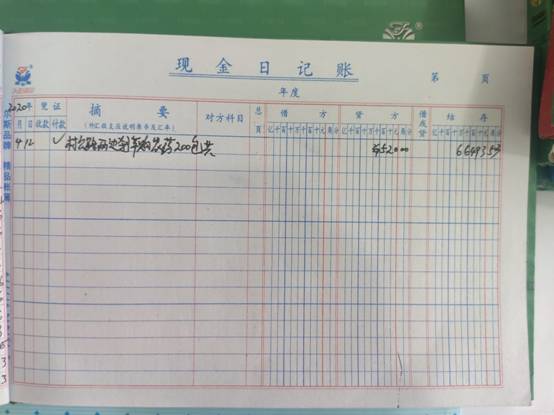 现金日记账
第 页
年度
2020年 凭证 摘要 对方科目 总页 借方 贷方 借或贷 结存
月 日 收款 付款 (外汇收支应说明原币及汇率) 亿千百十万千百十元角分 亿千百十万千百十元角分 亿千百十万千百十元角分
4 12 ✓ 村公路两边 农药200包共 5200 6649359
尔斯品牌 精品帐簿